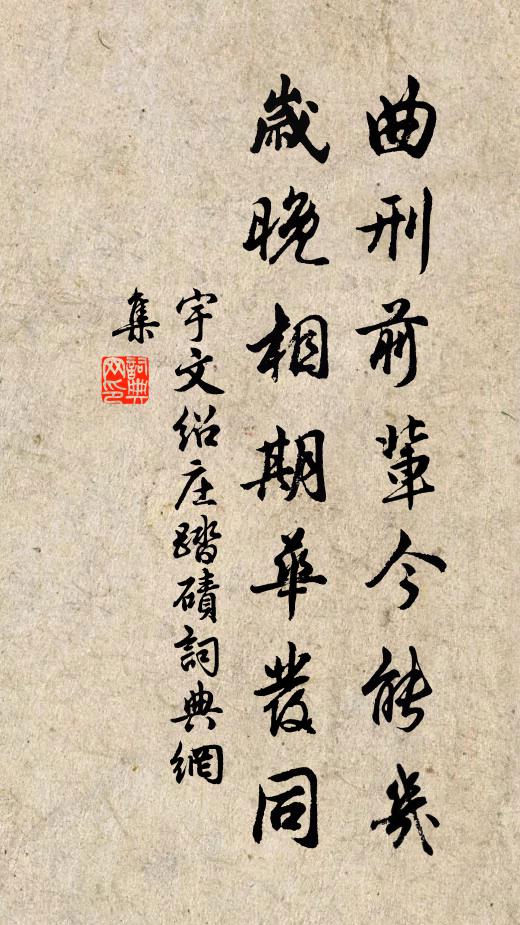 曲刑前輩今能幾
歲晚相期華發同
宇文绍庄踏磧詞典網
集
詞典網印